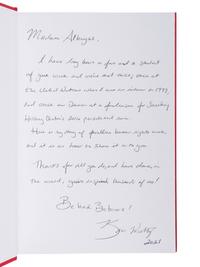 Madam Albright,
I have long been a fan and a student
of your work and we've met twice, once at
the United Nations when I was an intern in 1993,
and once in Denver at a fundraiser for Secretary
Hillary Clinton's presidential run.
Here is my story of frontline human rights work,
and it is an honor to share it with you.
Thanks for all you do, and have done, in
the world, you've inspired thousands of us!
Be
2021